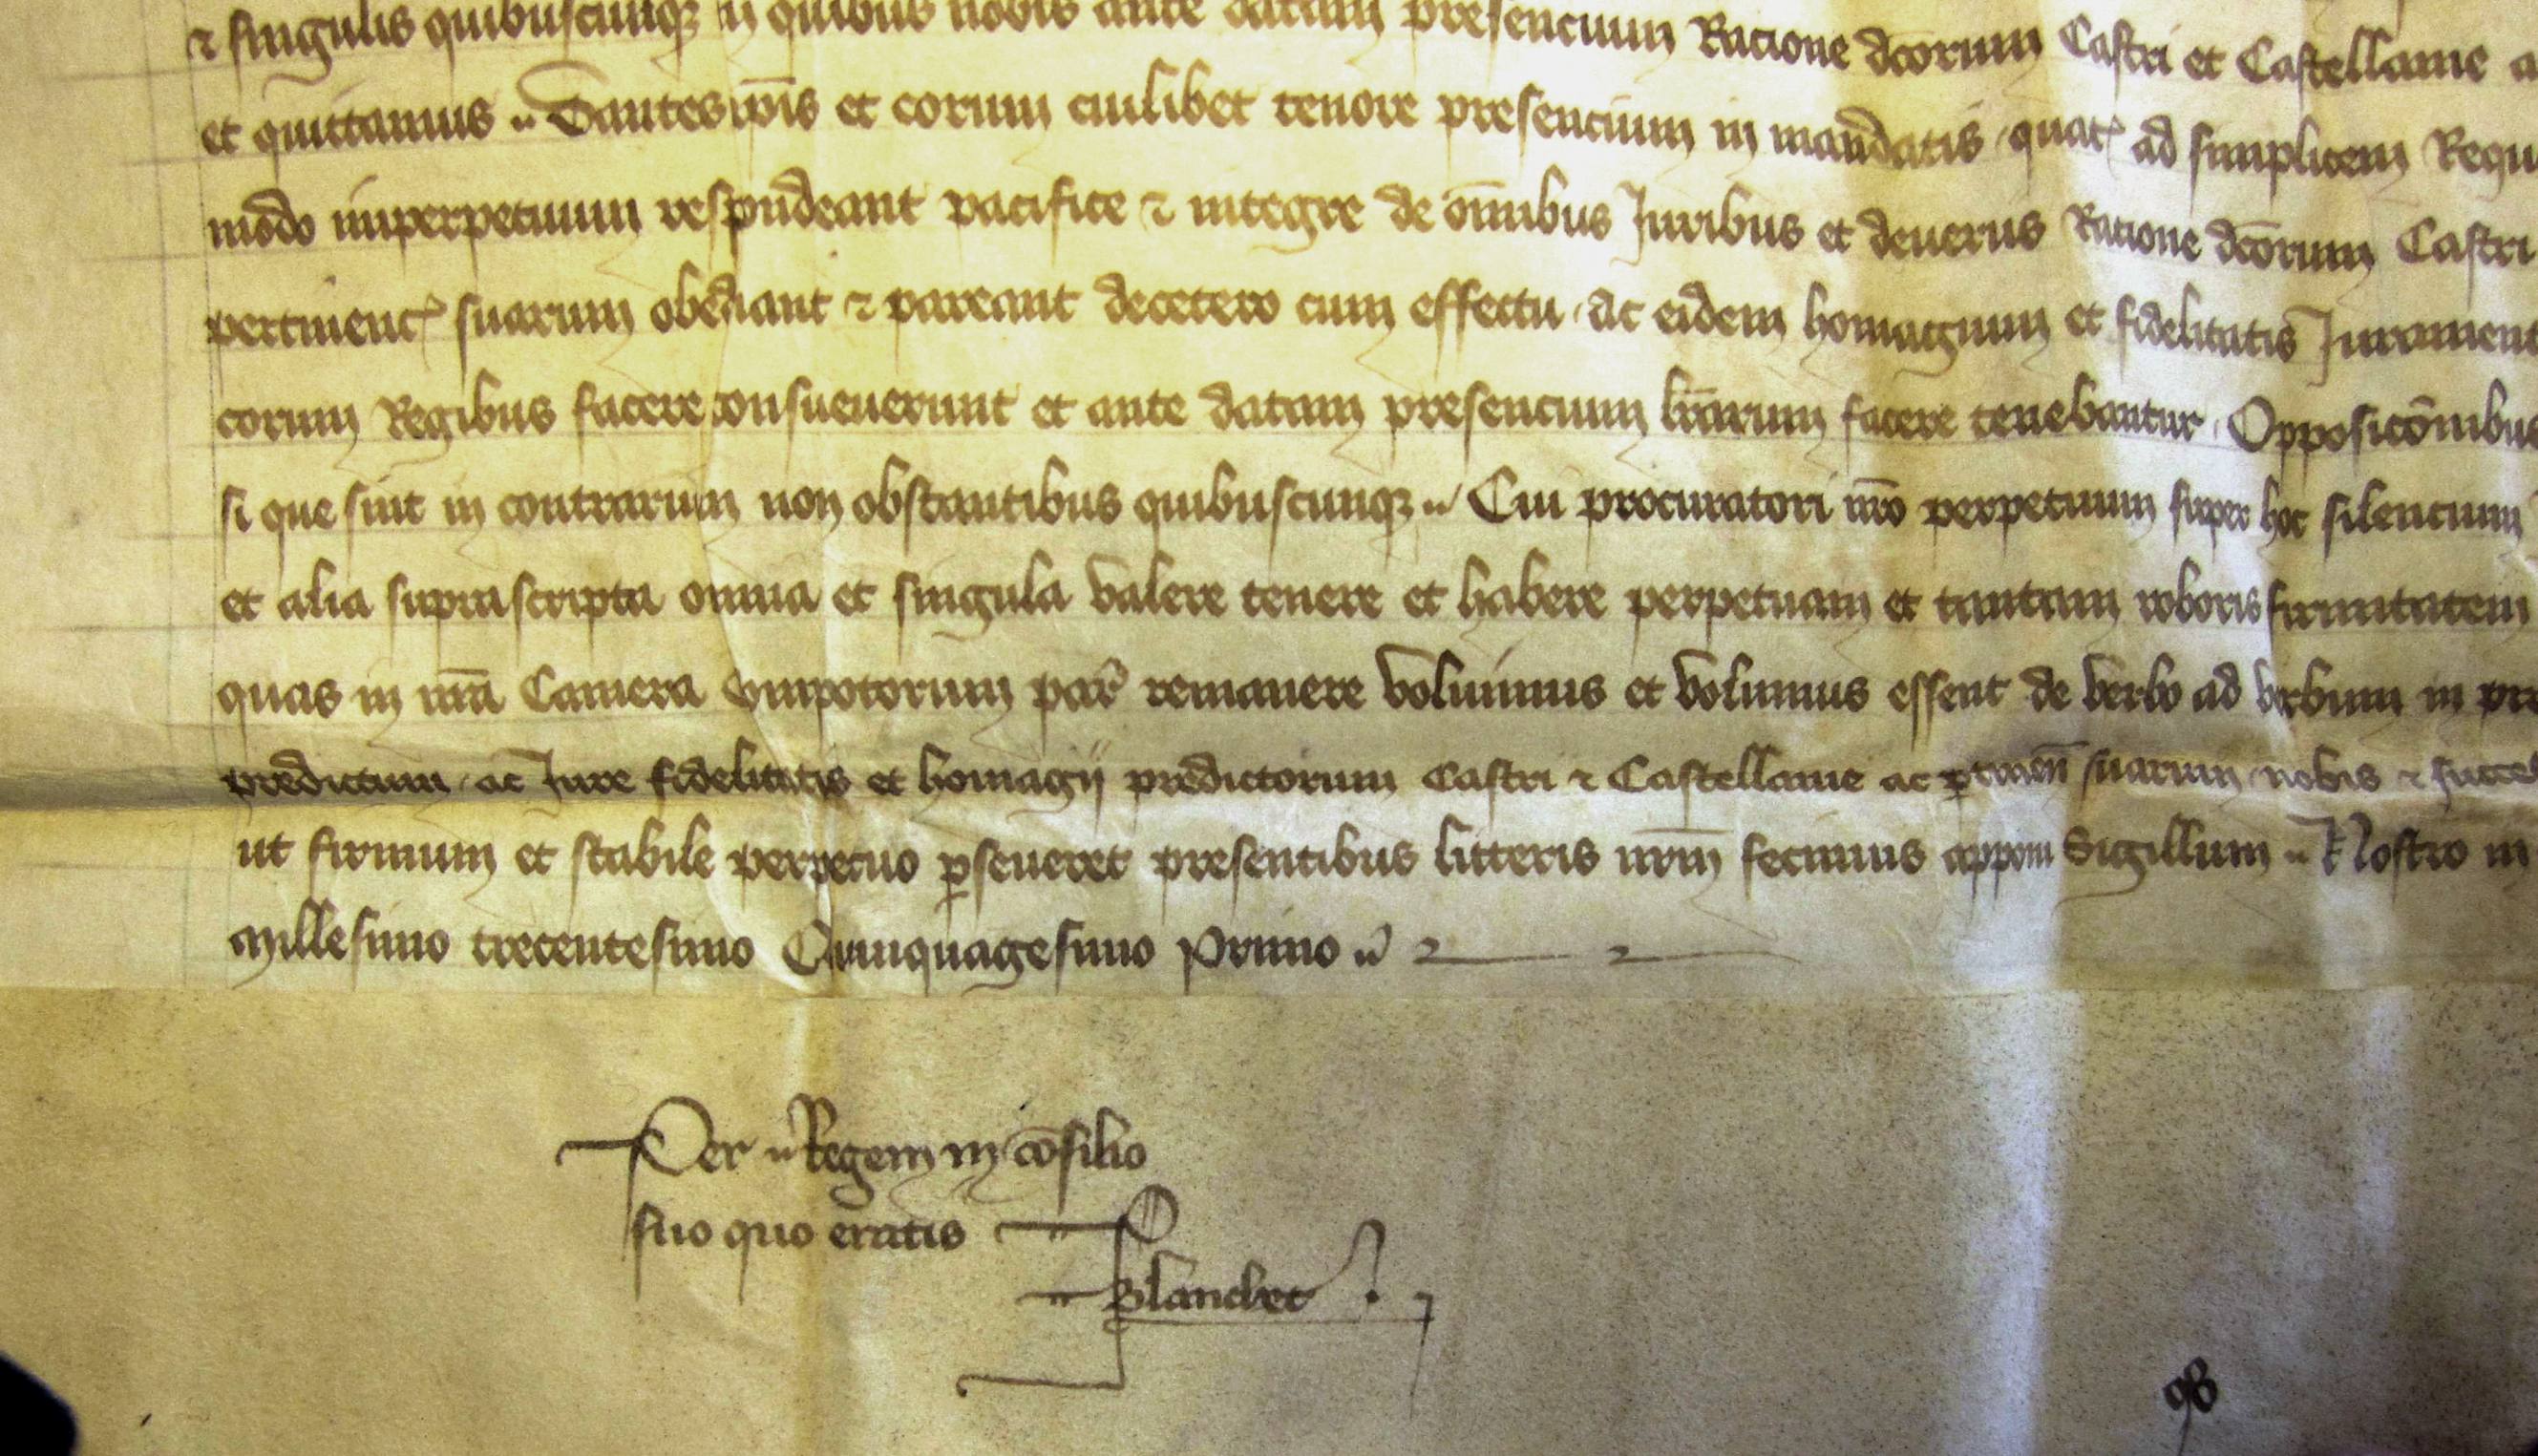 ⁊ singulis quibuscunqꝫ in quibus nobis ante datam presencium Racione dc̄orum Castri et Castellanie a
et quittamus Dantes ip̄is et eorum cuilibet tenore presencium in man̄datis quatꝰ ad simplicem Requ
modo imperpetuum respondeant pacifice ⁊ integre de om̄ibus Juribus et deueriis Racione dc̄orum Castri
pertinenc̄ suarum obediant ⁊ pareant decetero cum effectu ac eidem homagium et fidelitatis Jurament
eorum Regibus facere consueuerunt et ante datam presencium lr̄arum facere tenebantur Opposic̄onibus
si que sint in contrarium non obstantibus quibuscunqꝫ Cui procuratori nr̄o perpetuum super hoc silencium
et alia suprascripta omnia et singula valere tenere et habere perpetuam et tantam roboris firmitatem
quas in nr̄a Camera Compotorum par̄ remanere voluimus et volumus essent de verbo ad verbum in pre
predictum ac Jure fidelitatis et homagij predictorum Castri ⁊ Castellanie ac ꝑtinen̄ suarum nobis ⁊ succes
ut firmum et stabile perpetuo ꝑseueret presentibus litteris nr̄m fecimus apponi Sigillum Nostro in
Millesimo trecentesimo Quinquagesimo Primo
Per Regem in cōsilio
suo quo eratis P
Blanchet
98